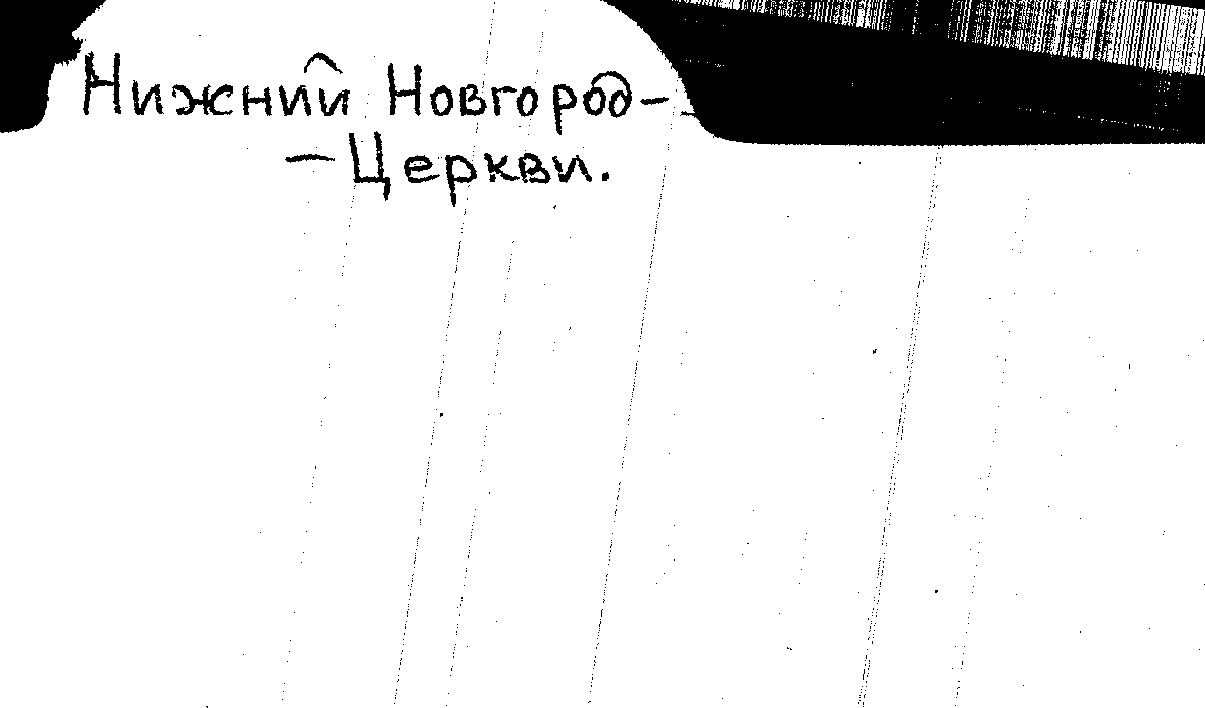 Нижний Новгород-
- Церкви.